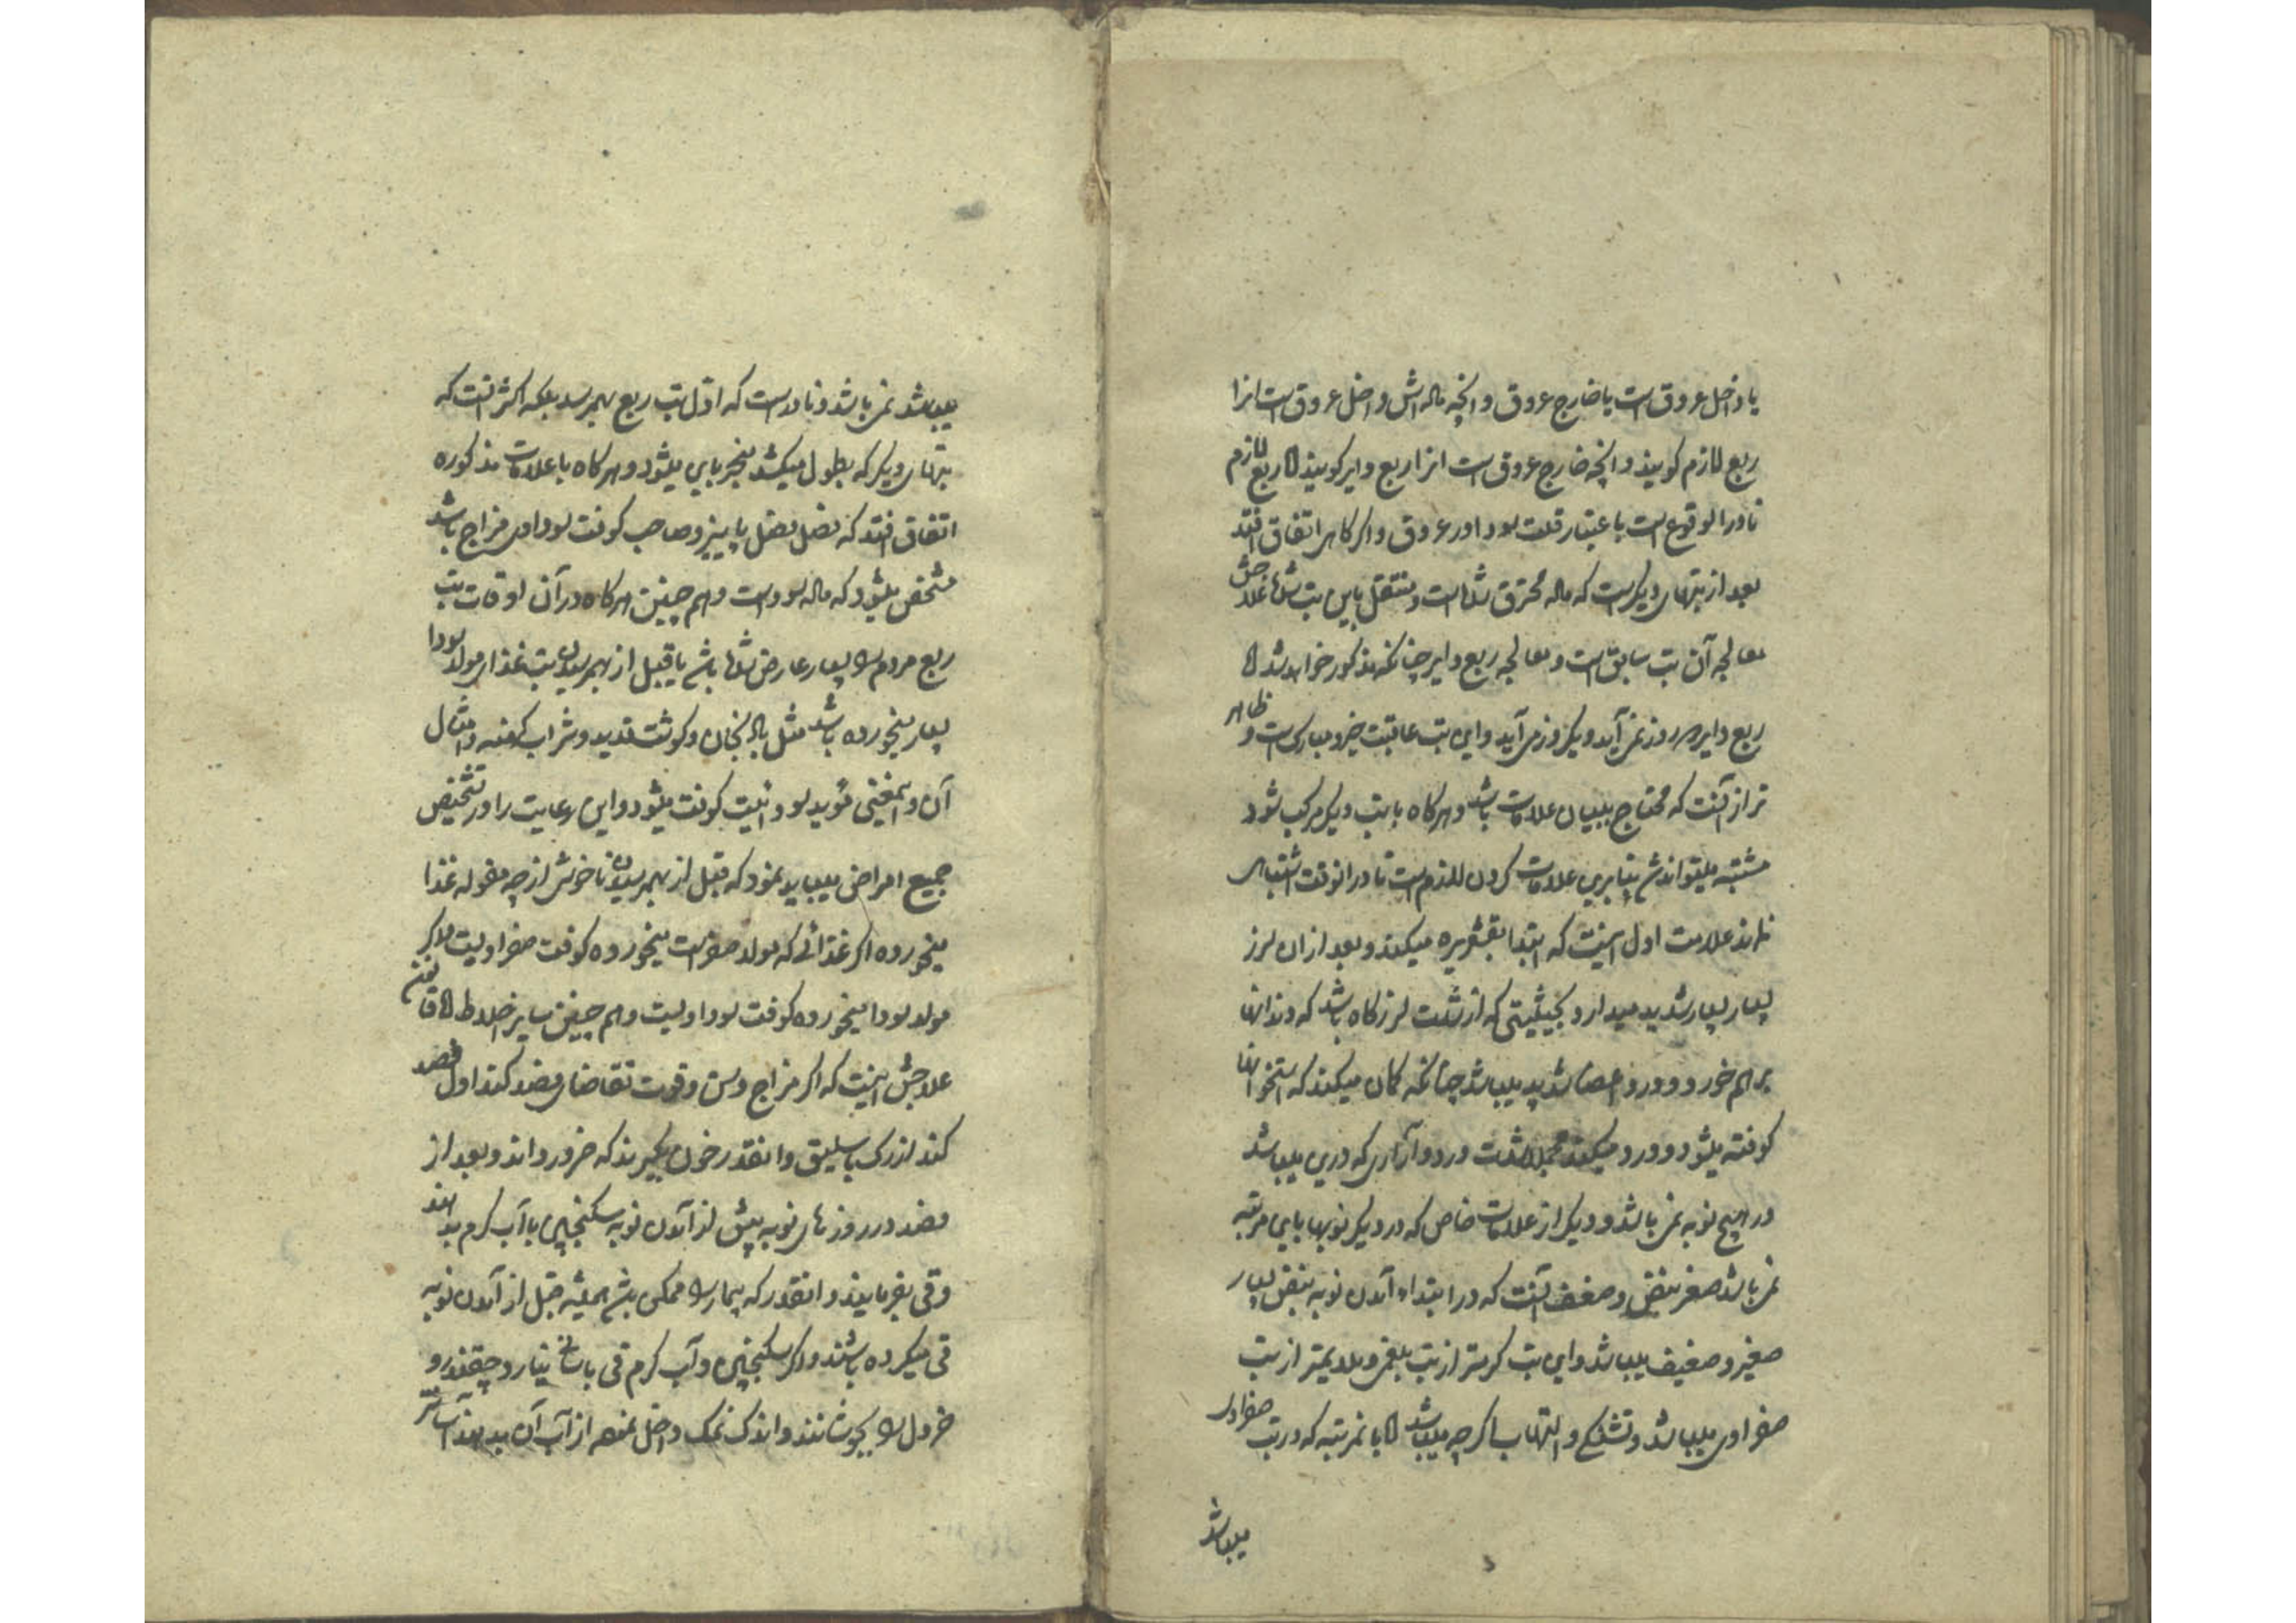 یا داخل عروق است یا خارج عروق و انچه ماده اش داخل عروق است انرا
ربع لازم کویند و انچه خارج عروق است انرا ربع دایر کویند اما ربع لازم
نادر الوقوع است باعتبار قلت سودا در عروق و اکر کاهی اتفاق افتد
بعد از تبهای دیکر است که ماده محترق شده است و منتقل باین تب شده علاجش
معالجه آن تب سابق است و معالجه ربع دایر چنانکه مذکور خواهد شد اما
ربع دایر دو روز نمی آید و یکروز می آید و این تب عاقبت خیر و مبارک است و ظاهر
تر از آنست که محتاج ببیان علامات باشد و هرکاه با تب دیکر مرکب شود
مشتبه میتواند شد بنابرین علامات کردن لازم است تا در انوقت اشتباهی
نماند علامت اول اینست که ابتدا بقشعریره میکند و بعد از ان لرز
بسیار بسیار شدید میدارد بحیثیتی که از شدت لرز کاه باشد که دندانها
بر هم خورد و درد اعضا شدید میباشد چنانکه کمان میکند که استخوانها
کوفته میشود و درد میکند مجملا شدت درد و آزاری که درین میباشد
در هیچ نوبه نمی باشد و دیکر از علامات خاص که در دیکر نوبها باین مرتبه
نمی باشد صغر نبض و ضعف آنست که در ابتداء آمدن نوبه نبض بسیار
صغیر و ضعیف میباشد و این تب کرمتر از تب بلغمی و ملایمتر از تب
صفراوی میباشد و تشنکی و التهاب اکرچه میباشد اما بانمرتبه که در تب صفراوی
میباشد
میباشد نمی باشد و نادر است که اول تب ربع بهمرسد بلکه اکثر انست که
تبهای دیکر که بطول میکشد منجر باین میشود و هرکاه با علامات مذکوره
اتفاق افتد که فصل فصل پاییز و صاحب کوفت سوداوی مزاج باشد
مشخص میشود که ماده سوداست و هم چنین هرکاه در آن اوقات تب
ربع مردم را بسیار عارض شده باشد یا قبل از بهمرسیدن تب غذای مولد سودا
بسیار میخورده باشد مثل بادنجان و کوشت قدید و شراب کهنه و امثال
آن و اینمعنی مؤید سودائیت کوفت میشود و این رعایت را در تشخیص
جمیع امراض میباید نمود که قبل از بهمرسیدن ناخوشی از چه مقوله غذا
میخورده اکر غذائی که مولد صفراست میخورده کوفت صفراویست و اکر
مولد سودا میخورده کوفت سوداویست و هم چنین سایر اخلاط اما قانون
علاجش اینست که اکر مزاج و سن و قوت تقاضای فصد کند اول فصد
کند از رک باسلیق و انقدر خون بکیرند که ضرور داند و بعد از
فصد در روزهای نوبه پیش از آمدن نوبه سکنجبین با آب کرم بدهند
و قی بفرمایند و انقدر که بیمار را ممکن باشد همیشه قبل از آمدن نوبه
قی میکرده باشند و اکر سکنجبین و آب کرم قی باسانی نیارد چقندر و
خردل را بجوشانند و اندک نمک داخل نموده از آب آن بدهند